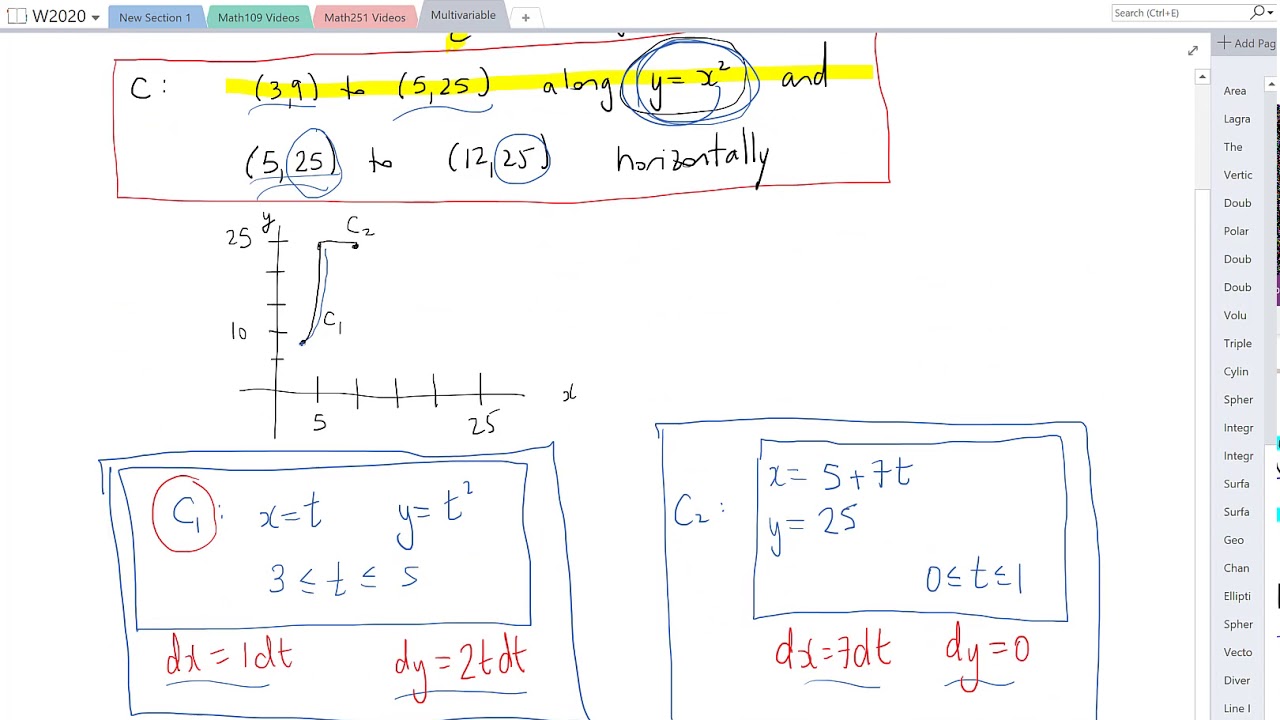 W2020 New Section 1 Math109 Videos Math251 Videos Multivariable + Search (Ctrl+E)
+ Add Pag
C: (3,9) to (5,25) along y = x² and
(5,25) to (12,25) horizontally
y
25
C₂
C₁
10
x
5 25
C₁: x=t y=t²
3 ≤ t ≤ 5
dx = 1dt dy = 2tdt
C₂: x= 5+7t
y= 25
0≤t≤1
dx=7dt dy=0
Area
Lagra
The
Vertic
Doub
Polar
Doub
Doub
Volu
Triple
Cylin
Spher
Integr
Integr
Surfa
Surfa
Geo
Chan
Ellipti
Spher
Vecto
Diver
Line I